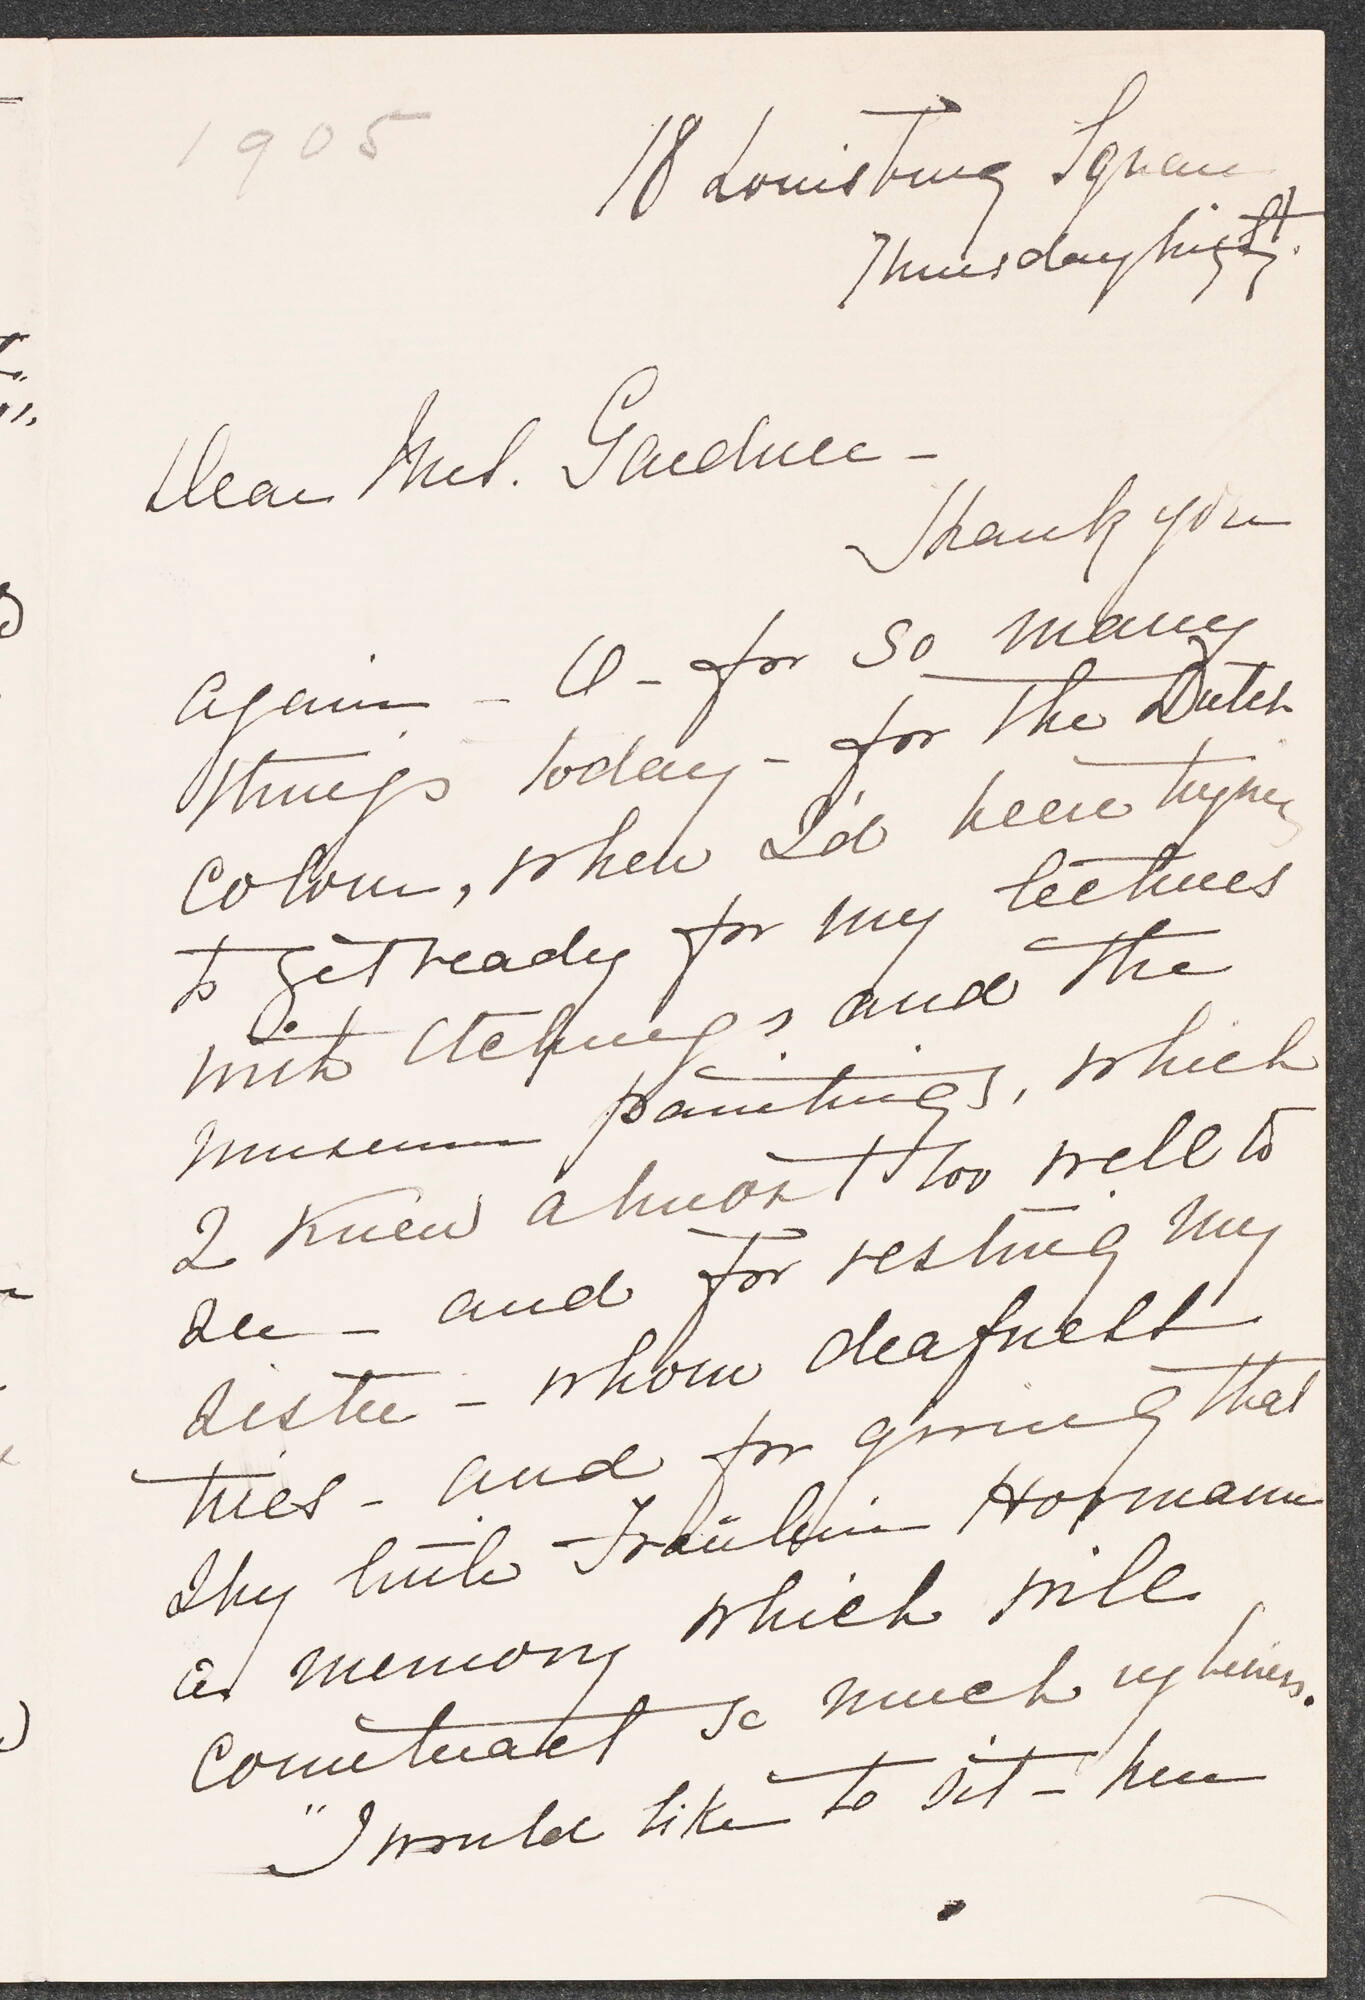 1905
18 Louisburg Square
Thursday night.
Dear Mrs. Gardner -
Thank you
again - O - for so many
things today - for the Dutch
colour, when I'd been trying
to get ready for my lectures
with etchings and the
museum paintings, which
I knew almost too well to
see - and for resting my
sister - whom deafness
tries - and for giving that
shy little Fraülein Hormann
a memory which will
counteract so much ugliness.
"I would like to sit - here